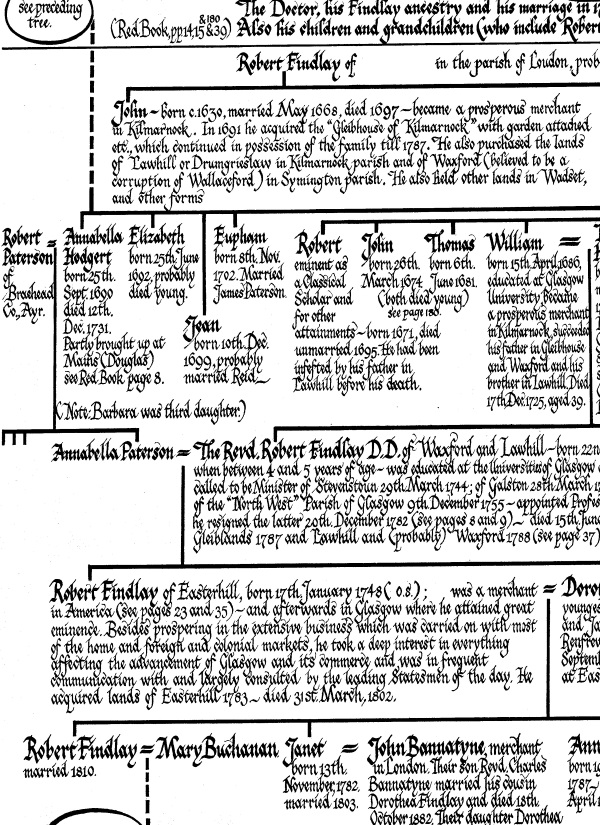 see preceding
tree.
The Doctor, his Findlay ancestry and his marriage in 1
(Red Book, pp 14, 15 & 39) Also his children and grandchildren (who include Robert
& 180
Robert Findlay of in the parish of Loudon, prob
John ~ born c.1630, married May 1668, died 1697 ~ became a prosperous merchant
in Kilmarnock. In 1691 he acquired the "Gleibhouse of Kilmarnock" with garden attached
etc., which continued in possession of the family till 1787. He also purchased the lands
of Lawhill or Drumgrieslaw in Kilmarnock parish and of Waxford (believed to be a
corruption of Wallaceford) in Symington parish. He also held other lands in Wadset,
and other forms
Robert
Paterson
of
Braehead
Co, Ayr.
=
Annabella
Hodgert
born 25th.
Sept. 1690
died 12th.
Dec. 1731.
Partly brought up at
Mains (Douglas)
see Red Book page 8.
Elizabeth
born 25th June
1692, probably
died young.
Jean
born 10th. Dec.
1699, probably
married Reid
Eupham
born 8th. Nov.
1702. Married
James Paterson.
Robert
eminent as
a Classical
Scholar and
for other
attainments ~ born 1671, died
unmarried 1695. He had been
infefted by his father in
Lawhill before his death.
John
born 26th.
March 1674
Thomas
born 6th.
June 1681.
(both died young)
see page 180.
William =
born 15th April 1686,
educated at Glasgow
University, became
a prosperous merchant
in Kilmarnock, succeeded
his father in Gleibhouse
and Waxford and his
brother in Lawhill. Died
17th Dec. 1725, aged 39.
(Note: Barbara was third daughter.)
Annabella Paterson = The Revd. Robert Findlay D.D. of Waxford and Lawhill ~ born 22n
when between 4 and 5 years of age ~ was educated at the Universities of Glasgow
called to be Minister of Stevenstoun 29th March 1744; of Galston 28th March 1
of the "North West" Parish of Glasgow 9th December 1755 ~ appointed Profes
he resigned the latter 20th. December 1782 (see pages 8 and 9) ~ died 15th. June
Gleiblands 1787 and Lawhill and (probably) Waxford 1788 (see page 37)
Robert Findlay of Easterhill, born 17th. January 1748 (o.s.); was a merchant
in America (see pages 23 and 35) ~ and afterwards in Glasgow where he attained great
eminence. Besides prospering in the extensive business which was carried on with most
of the home and foreign and colonial markets, he took a deep interest in everything
affecting the advancement of Glasgow and its commerce and was in frequent
communication with and largely consulted by the leading Statesmen of the day. He
acquired lands of Easterhill 1783 ~ died 31st. March, 1802.
= Doro
younges
and Ja
Renfrew
Septemb
at Eas
Robert Findlay = Mary Buchanan
married 1810.
Janet =
born 13th.
November, 1782,
married 1803.
John Bannatyne, merchant
in London. Their son Revd. Charles
Bannatyne married his cousin
Dorothea Findlay and died 18th.
October 1882. Their daughter Dorothea
Ann
born 10
1787 ~
April 1